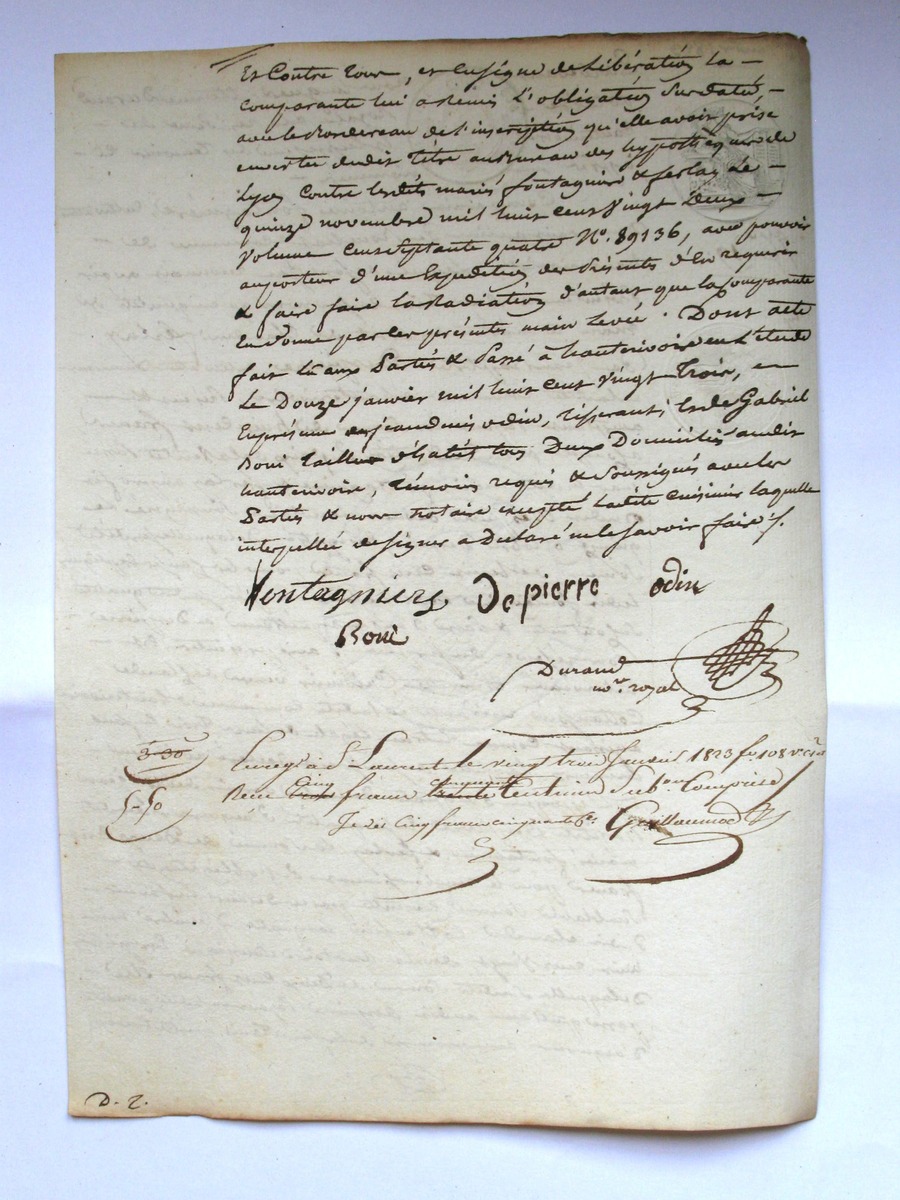 Et Contre tour, et en signe de Libération la —
comparante lui a remis l'obligation Sus datée, —
avec le Bordereau de l'inscription qu'elle avoit prise
en vertu dudit titre au Bureau des hypotheques de
Lyon contre lesdits mariés fontagnier & ferlay le —
quinze novembre mil huit cent Vingt Deux —
Volume cent septante quatre N°. 89136, avec pouvoir
au porteur d'une Expedition des présentes d'En requerir
& faire faire la Radiation d'autant que la Comparante
En donne par les présentes main levée. Dont acte
fait lu aux Parties & Passé à hauterivoire en L'étude
Le Douze janvier mil huit cent vingt Trois, en
En présence de jean denis odin, tisserant, & de Gabriel
Boni tailleur d'habits tous Deux Domiciliés audit
hauterivoire, témoins requis & Soussignés avec les
Parties & nous notaire excepté ladite laquelle
interpellée de signer a Declaré ne le Savoir faire ./.
Montagniers De pierre odin
Boni
Durand
no.re royal
3-30
5-50
Enregé à St Laurent le vingt trois Janvier 1823 fo. 108 vo.
Reçu Cinq francs Cinquante Centimes Subon Comprise
Je dis Cinq francs cinquante Cs. Guillaumod
D. 2.